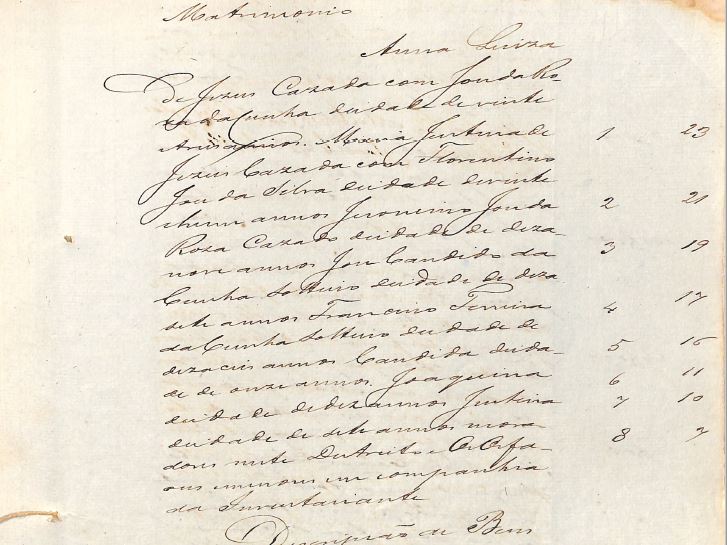 Matrimonio
Anna Luiza
de Jezus Cazada com Jose da Ro-
za da Cunha deidade de vinte
annos. Maria Justina de 1 23
Jezus Cazada com Florentino
Jose da Silva deidade de vinte
e hum annos Jeronimo Jose da 2 21
Roza Cazado deidade de deza-
nove annos Jose Candido da 3 19
Cunha Solteiro deidade de deza
sete annos Francisco Ferreira 4 17
da Cunha Solteiro deidade de
dezaceis annos Candida deida- 5 16
de de onze annos. Joaquina 6 11
deidade de dez annos Justina 7 10
deidade de sete annos mora- 8 7
dores neste Destricto e Os Orfa-
os menores em companhia
da Inventariante
Descripção de Bens